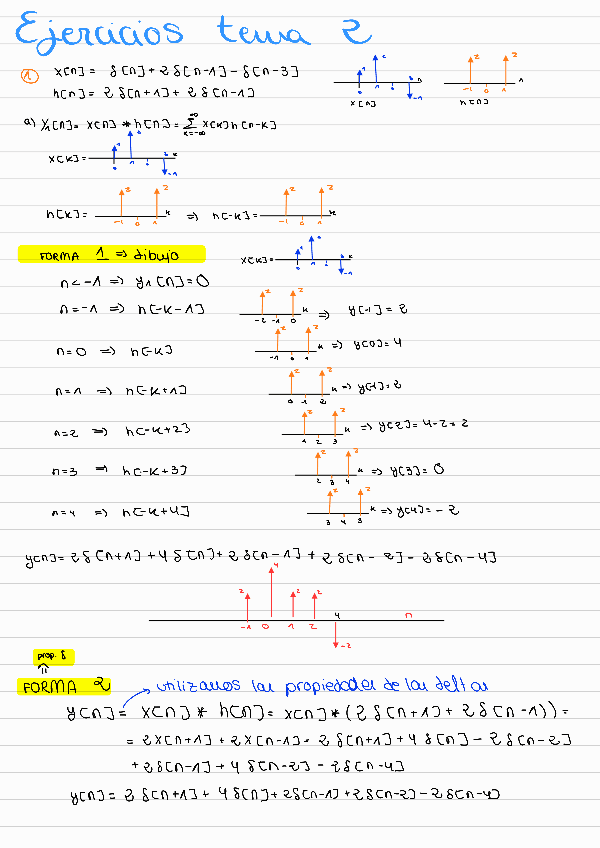 Ejercicios tema 2
① x[n] = δ[n] + 2δ[n-1] - δ[n-3]
h[n] = 2δ[n+1] + 2δ[n-1]
x[n] h[n]
a) y₁[n] = x[n] * h[n] = ∑ x[k] h[n-k]
x[k] =
h[k] = ⇒ h[-k] =
FORMA 1 ⇒ dibujo x[k] =
n < -1 ⇒ y₁[n] = 0
n = -1 ⇒ h[-k-1] ⇒ y[-1] = 2
n = 0 ⇒ h[-k] ⇒ y[0] = 4
n = 1 ⇒ h[-k+1] ⇒ y[1] = 2
n = 2 ⇒ h[-k+2] ⇒ y[2] = 4-2 = 2
n = 3 ⇒ h[-k+3] ⇒ y[3] = 0
n = 4 ⇒ h[-k+4] ⇒ y[4] = -2
y[n] = 2δ[n+1] + 4δ[n] + 2δ[n-1] + 2δ[n-2] - 2δ[n-4]
2 4 2 2
-1 0 1 2 4 n
-2
prop. δ
FORMA 2 utilizamos las propiedades de las deltas
y[n] = x[n] * h[n] = x[n] * (2δ[n+1] + 2δ[n-1]) =
= 2x[n+1] + 2x[n-1] = 2δ[n+1] + 4δ[n] - 2δ[n-2]
+ 2δ[n-1] + 4δ[n-2] - 2δ[n-4]
y[n] = 2δ[n+1] + 4δ[n] + 2δ[n-1] + 2δ[n-2] - 2δ[n-4]